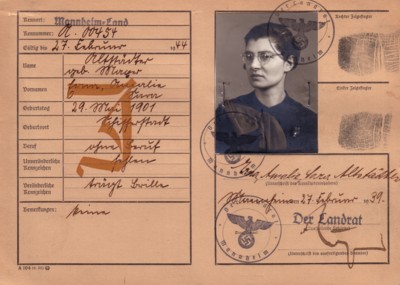 Kennort: Mannheim-Land
Kennnummer: A. 00454
Gültig bis 27. Februar 1944
Name Altstädter
geb. Mayer
Vornamen Erna, Amalie
Sara
Geburtstag 29. Mai 1901
Geburtsort Schifferstadt
Beruf ohne Beruf
Unveränderliche Kennzeichen fehlen
Veränderliche Kennzeichen trägt Brille
Bemerkungen: Keine
J
Rechter Zeigefinger
Linker Zeigefinger
Sara Altstädter
(Unterschrift des Kennkarteninhabers)
Mannheim, 27. Februar 39.
Der Landrat
Mannheim
(Unterschrift des ausfertigenden Beamten)